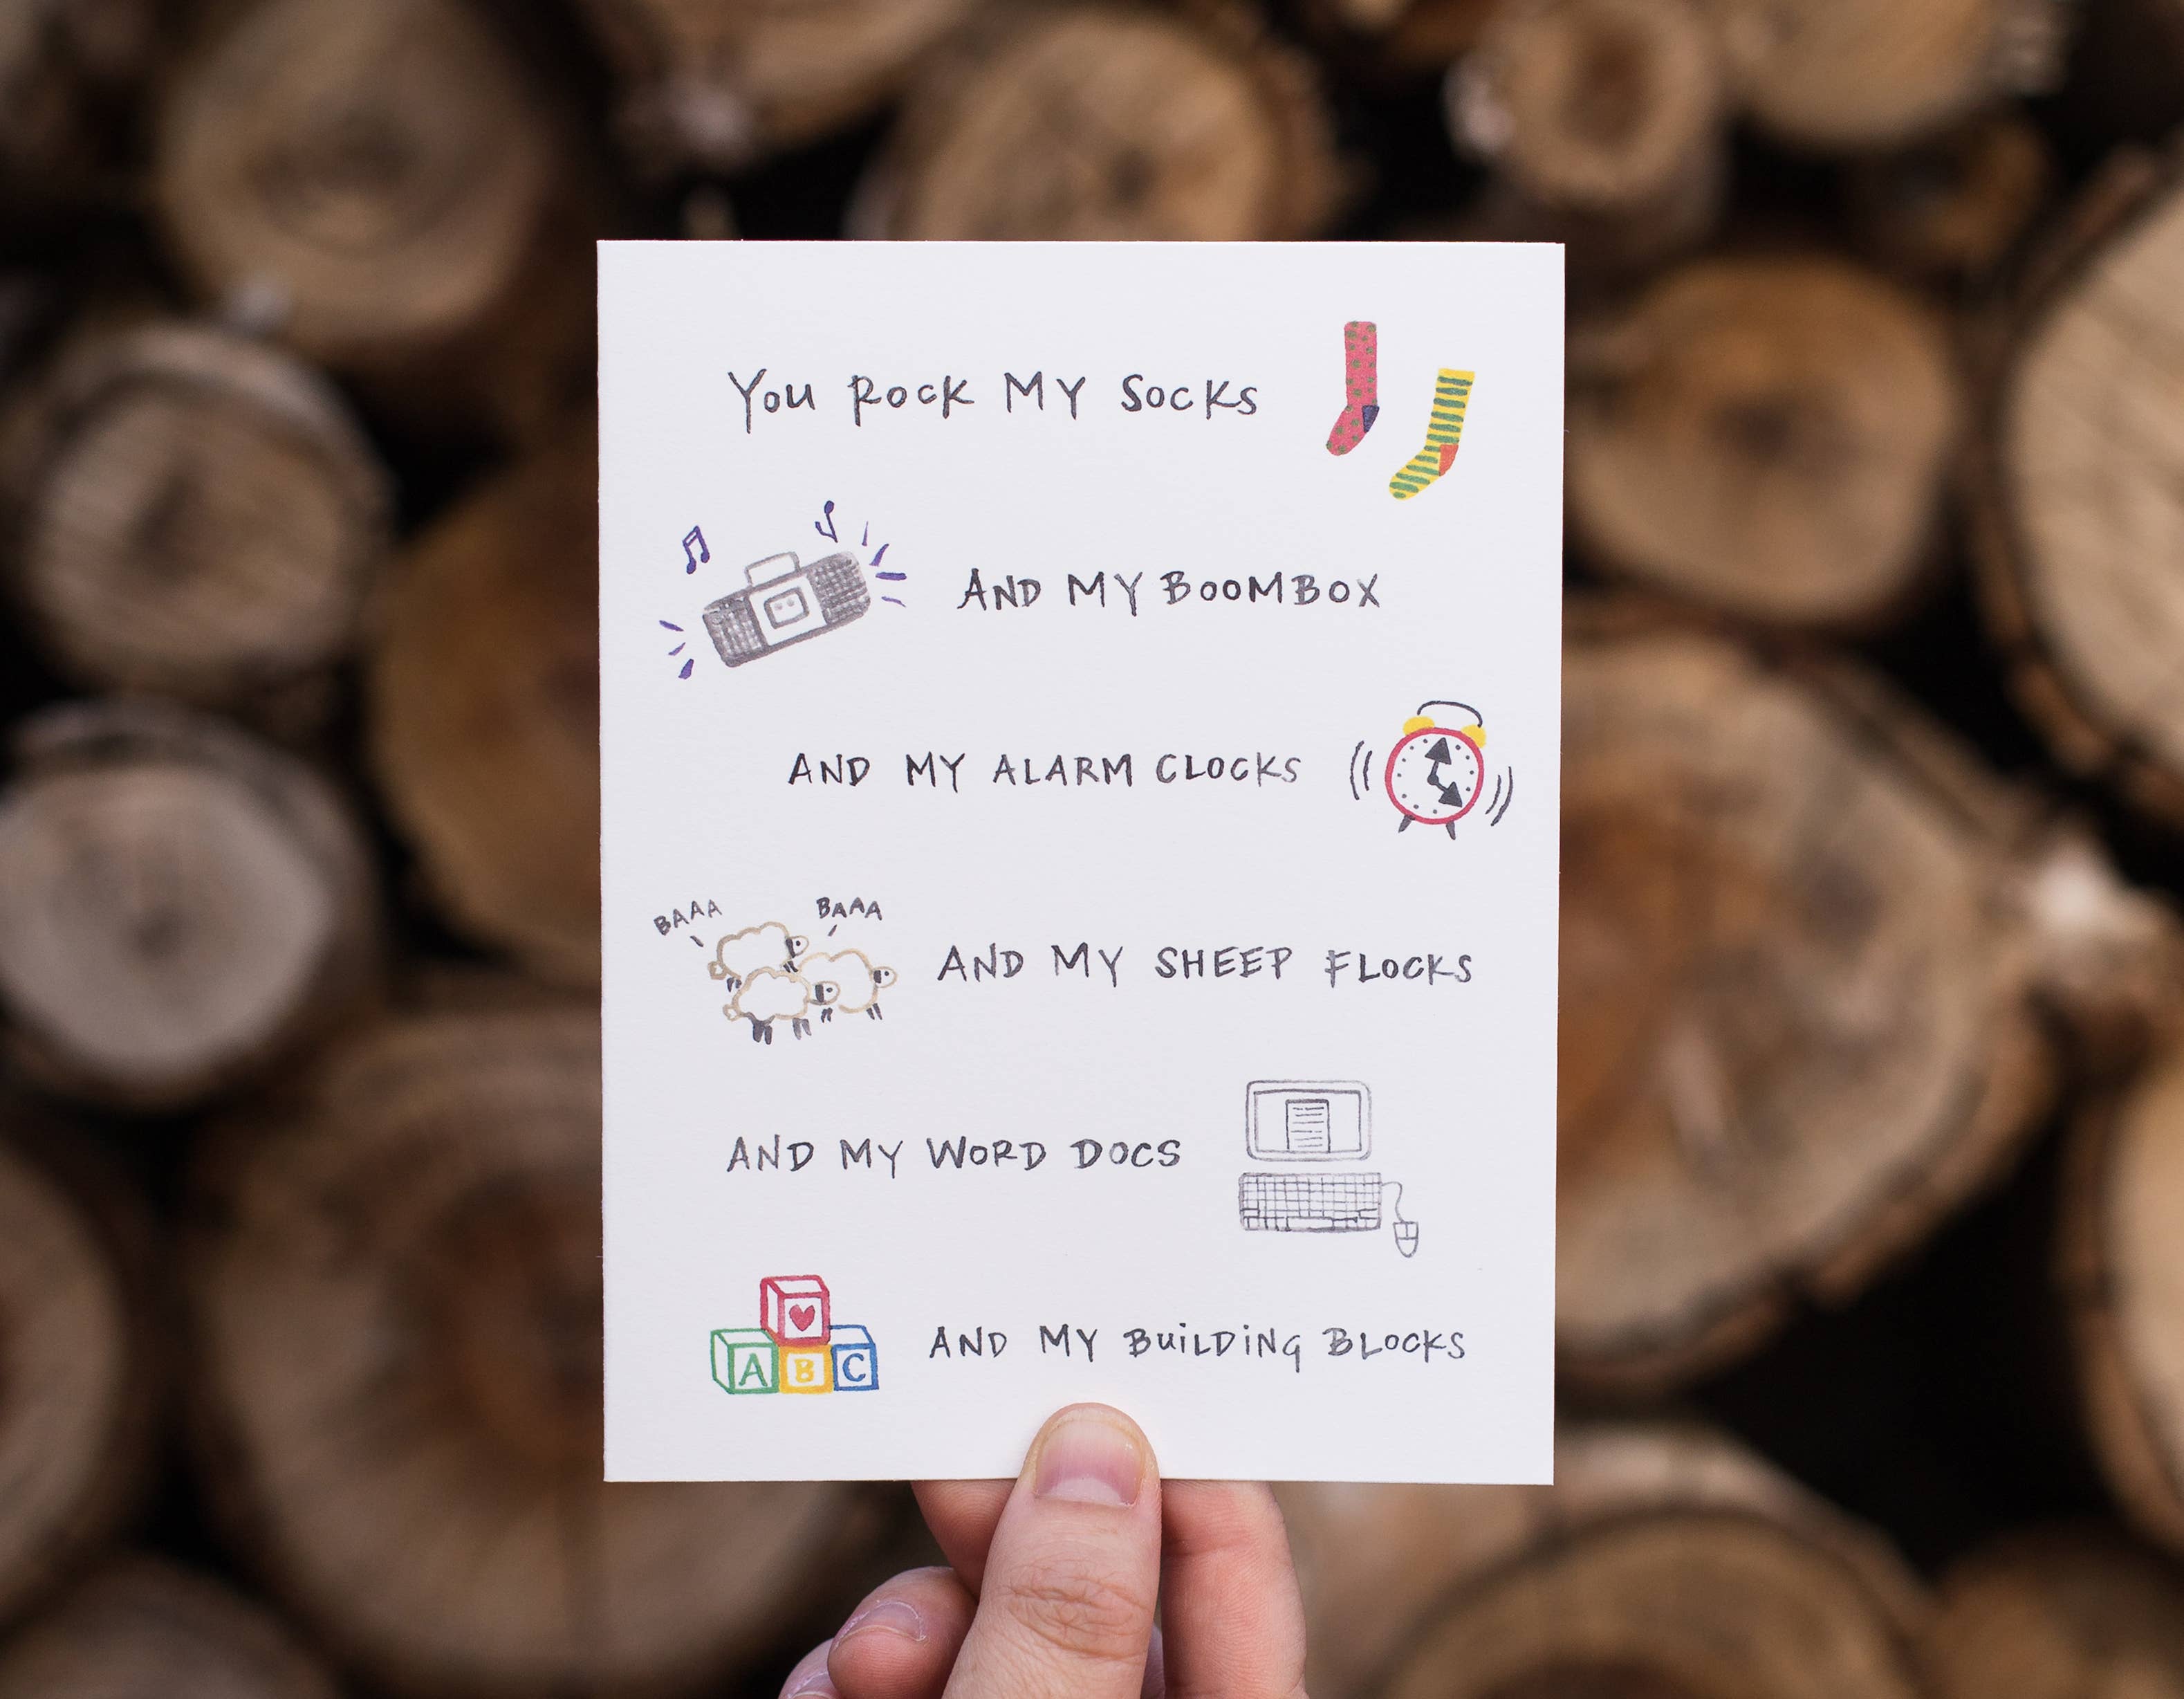 You Rock MY Socks
AND MY BOOMBOX
AND MY ALARM CLOCKS
BAAA BAAA
AND MY SHEEP FLOCKS
AND MY WORD DOCS
A B C
AND MY BUiLDiNG BLOCKS